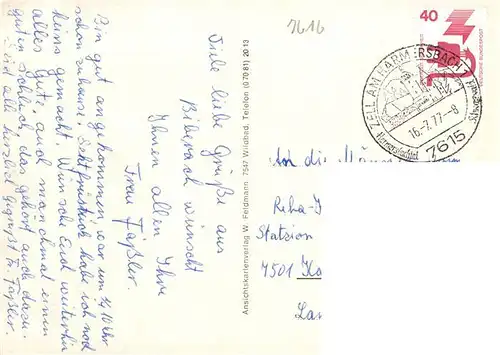 7616
Viele liebe Grüße aus
Biberach wünscht
Ihnen allen Ihre
Frau Fäßler.
Bin gut angekommen war um 14,10 Uhr
schon zuhause. Sektfrühstück habe ich noch
keins gemacht. Wünsche Euch weiterhin
alles Gute, auch manchmal einen
guten Schluck, das gehört auch dazu.
Seid alle herzlich Gegrüßt Fr. Fäßler.
Ansichtskartenverlag W. Feldmann 7547 Wildbad, Telefon (0 70 81) 20 13
40
DEUTSCHE BUNDESPOST
ZELL AM HARMERSBACH
16.-7.77-8
7615
An die
Reha-
Station
7501